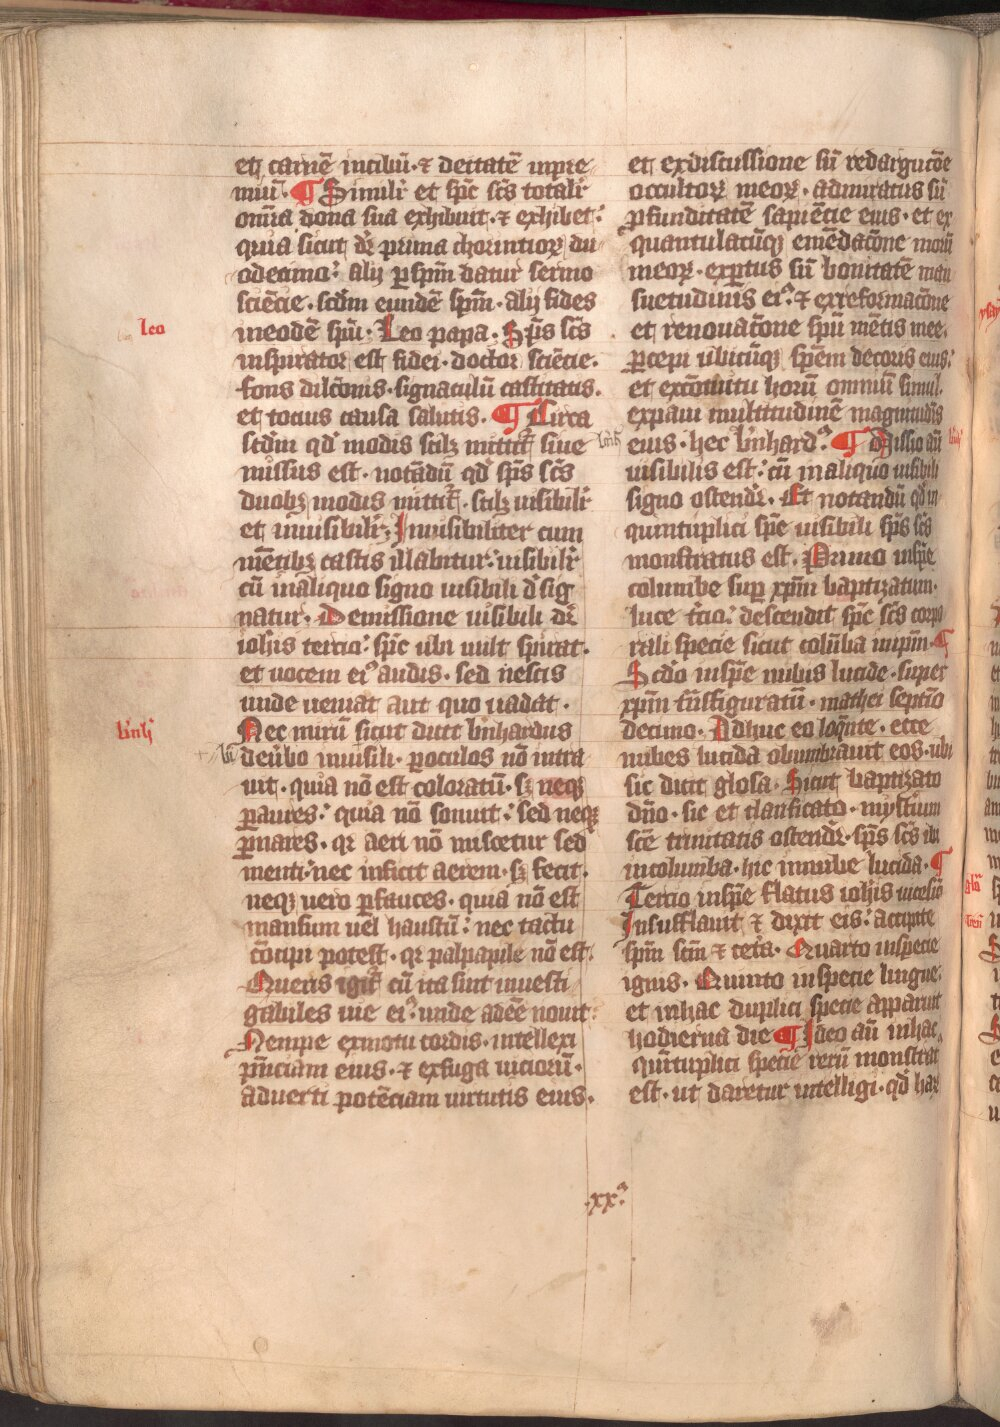 et carnē in cibū · ⁊ deitatē in pre
miū · ¶ Similir̄ et sp̄c sc̄s totalir̄
om̄ia dona sua exhibuit · ⁊ exhibet ·
quia sicut dr̄ prima chorintioꝝ du
odecimo · alij ꝑ sp̄m datur sermo
sciēcie · scd̄m eundē sp̄m · alij fides
in eodē spū · Leo papa · Sp̄s sc̄s
Leo
inspirator est fidei · doctor sciēcie ·
fons dilc̄onis · signaculū castitatis ·
et tocius causa salutis · ¶ Circa
scd̄m qd̄ modis scilꝫ mittit᷑ siue
missus est · notādū qd̄ sp̄s sc̄s
duobꝫ modis mittit᷑ · scilꝫ uisibilir̄
et inuisibilir̄ · Inuisibiliter cum
mētibꝫ castis illabitur · uisibilir̄
cū in aliquo signo uisibili d̄sig
natur · De missione uisibili dr̄
ioh̄is tercio · sp̄c ubi uult spirat ·
et uocem eiꝰ audis · sed nescis
unde ueniat aut quo uadat ·
Nec mirū sicut dicit b̄nhardus
b̄nh̄
de ūbo inuisili · ꝑ oculos nō intra
uit · quia nō est coloratū · sꝫ neqꝫ
ꝑ aures · quia nō sonuit · sed neqꝫ
ꝑ nares · qr aeri nō miscetur sed
menti · nec inficit aerem · sꝫ fecit ·
neqꝫ uero ꝑ fauces · quia nō est
mansum uel haustū · nec tactu
cōcipi potest · qr palpapile nō est ·
Queris igit᷑ cū ita sint inuesti
gabiles uie eiꝰ · unde adeē nouit ·
Nempe ex motu cordis · intellexi
p̄nciam eius · ⁊ ex fuga uicioꝝū ·
aduerti potēciam uirtutis eius ·
et ex discussione sū redargucōe
occultoꝝ meoꝝ · admiratus sū
ꝓfunditatē sapiēcie eius · et ex
quantulacūqꝫ emēdacōne morū
meoꝝ · exꝑtus sū bonitatē man
suetudinis eiꝰ · ⁊ ex reformacōne
et renouacōne spū mētis mee ·
ꝑcepi utcūqꝫ spēm decoris eius ·
et ex cōtuitu horū omniū simul ·
expaui multitudinē magnitudīs
eius · hec b̄nhardꝰ · ¶ Missio aū
b̄nh̄
uisibilis est · cū in aliquo uisibili
signo ostendr̄ · Et notandū qd̄ in
quintuplici spē uisibili sp̄s sc̄s
monstratus est · Primo in spē
columbe suꝑ xp̄m baptizatum ·
luce t̄cio · descendit sp̄c sc̄s corpo
rali specie sicut colūba in ip̄m · ¶
Scd̄o in spē nubis lucide · super
xp̄m t̄nsfiguratū · mathei septīo
decimo · Adhuc eo loqn̄te · ecce
nubes lucida obumbrauit eos · ubi
sic dicit glosa · Sicut baptizato
dn̄o · sic et clarificato · mysteriū
sc̄e trinitatis ostendr̄ · sp̄s sc̄s ibi
in columba · hic in nube lucida · ¶
Tercio in spē flatus ioh̄is uicesīo
Insufflauit ⁊ dixit eis · accipite
sp̄m sc̄m ⁊ cet̄a · Quarto in specie
ignis · Quinto in specie lingue ·
et in hac duplici specie apparuit
hodierna die ¶ Ideo aū in hac
quītuplici specie rerū monstrat᷑
est · ut daretur intelligi · qd̄ hac
·xxꝰ·